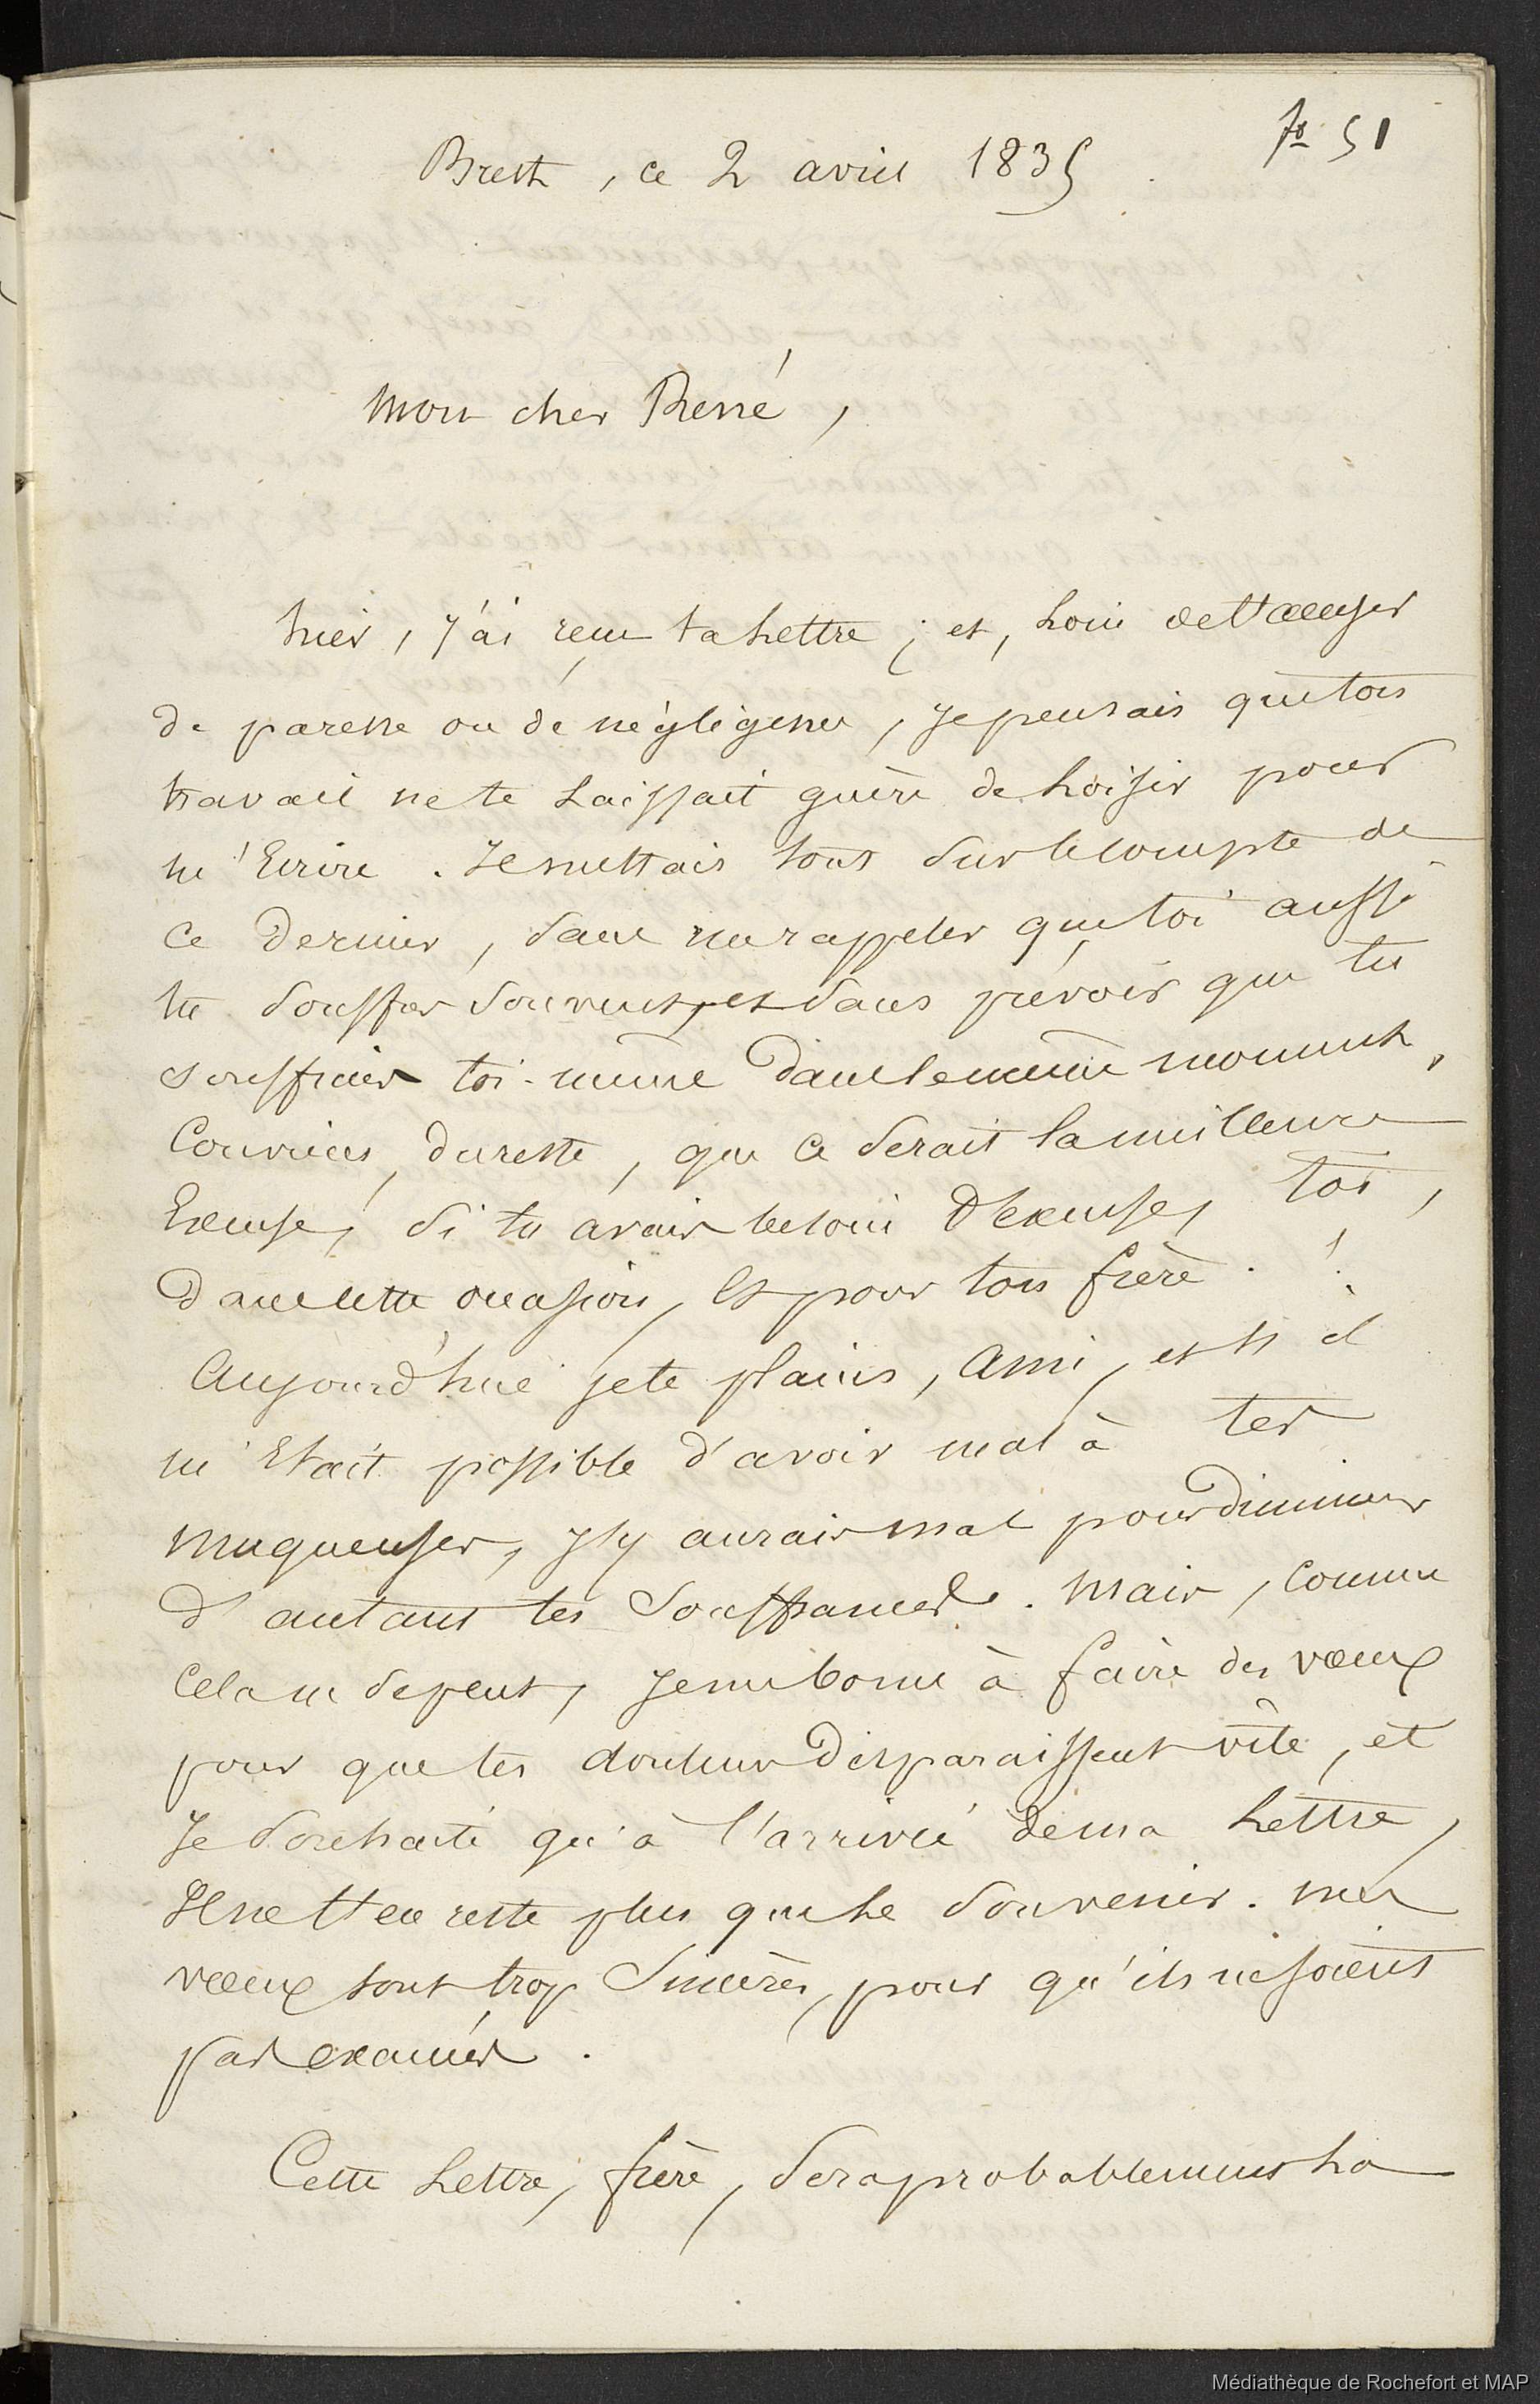 fo 51
Brest, ce 2 avril 1835
Mon cher René,
hier, j'ai reçu ta lettre; et, loin de t'accuser
de paresse ou de négligence, je pensais que ton
travail ne te laissait guère de loisir pour
m'écrire. Je mettais tout sur le compte de
ce dernier, sans me rappeler que toi aussi
tu souffres souvent, et sans prévoir que tu
souffrais toi-même dans le même moment,
Conviens, du reste, que ce serait la meilleure
Excuse, si tu avais besoin d'excuse, toi,
dans cette occasion, Et pour ton frère. !
Aujourd'hui je te plains, Ami, et s'il
m'Etait possible d'avoir mal à tes
muqueuses, j'y aurais mal pour diminuer
d'autant tes souffrances. Mais, comme
Cela ne se peut, je me borne à faire des vœux
pour que tes douleurs disparaissent vîte, et
Je souhaite qu'à l'arrivée de ma lettre,
Il ne t'en reste plus que le souvenir. Mes
vœux sont trop sincères, pour qu'ils ne soient
pas exaucés.
Cette lettre, frère, sera probablement la
Médiathèque de Rochefort et MAP